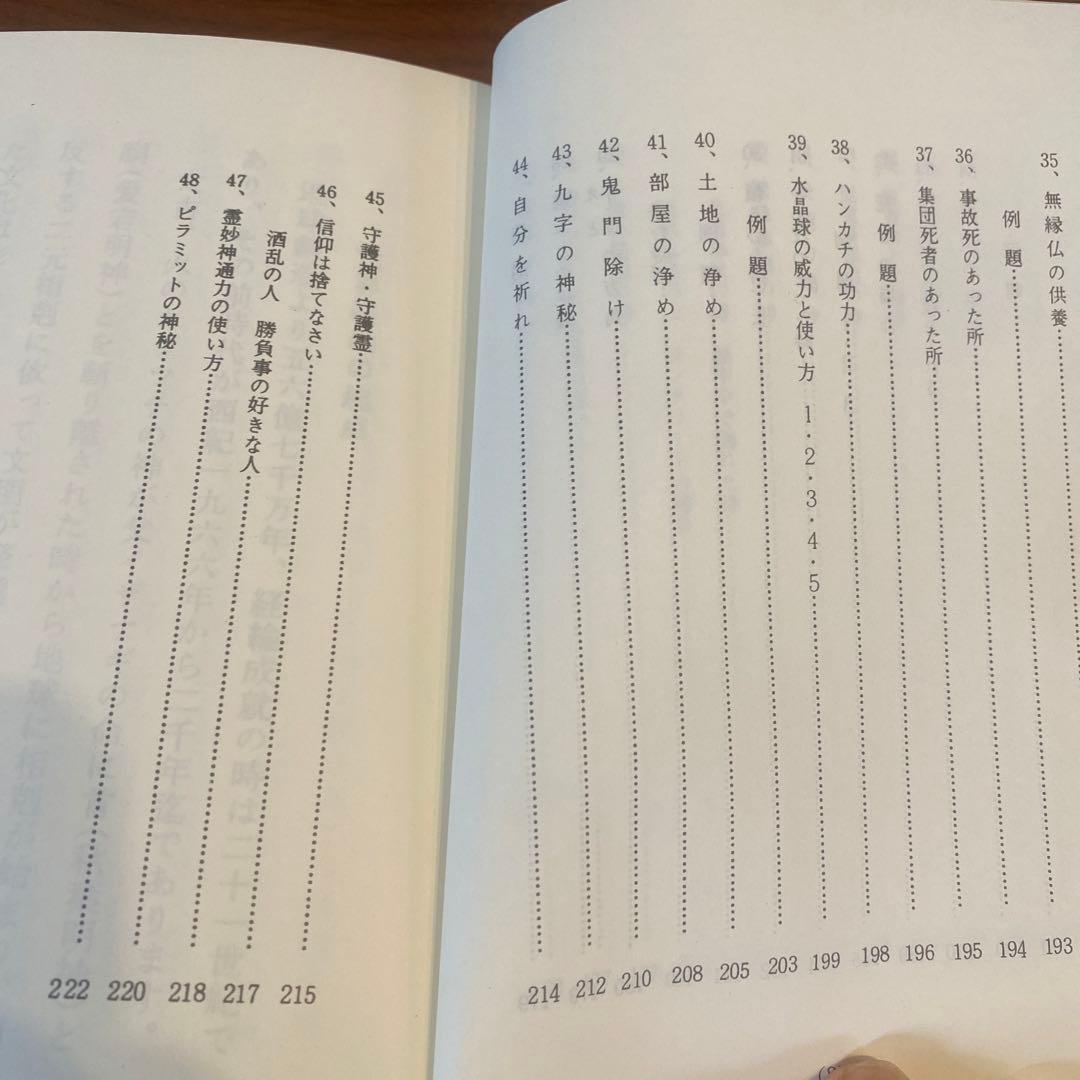 35、無縁仏の供養
例題……193
36、事故死のあった所……194
37、集団死者のあった所……195
例題……196
38、ハンカチの功力……198
39、水晶球の威力と使い方 1・2・3・4・5……199
例題……203
40、土地の浄め……205
41、部屋の浄め……208
42、鬼門除け……210
43、九字の神秘……212
44、自分を祈れ……214
45、守護神・守護霊……215
46、信仰は捨てなさい……217
酒乱の人 勝負事の好きな人……218
47、霊妙神通力の使い方……220
48、ピラミットの神秘……222